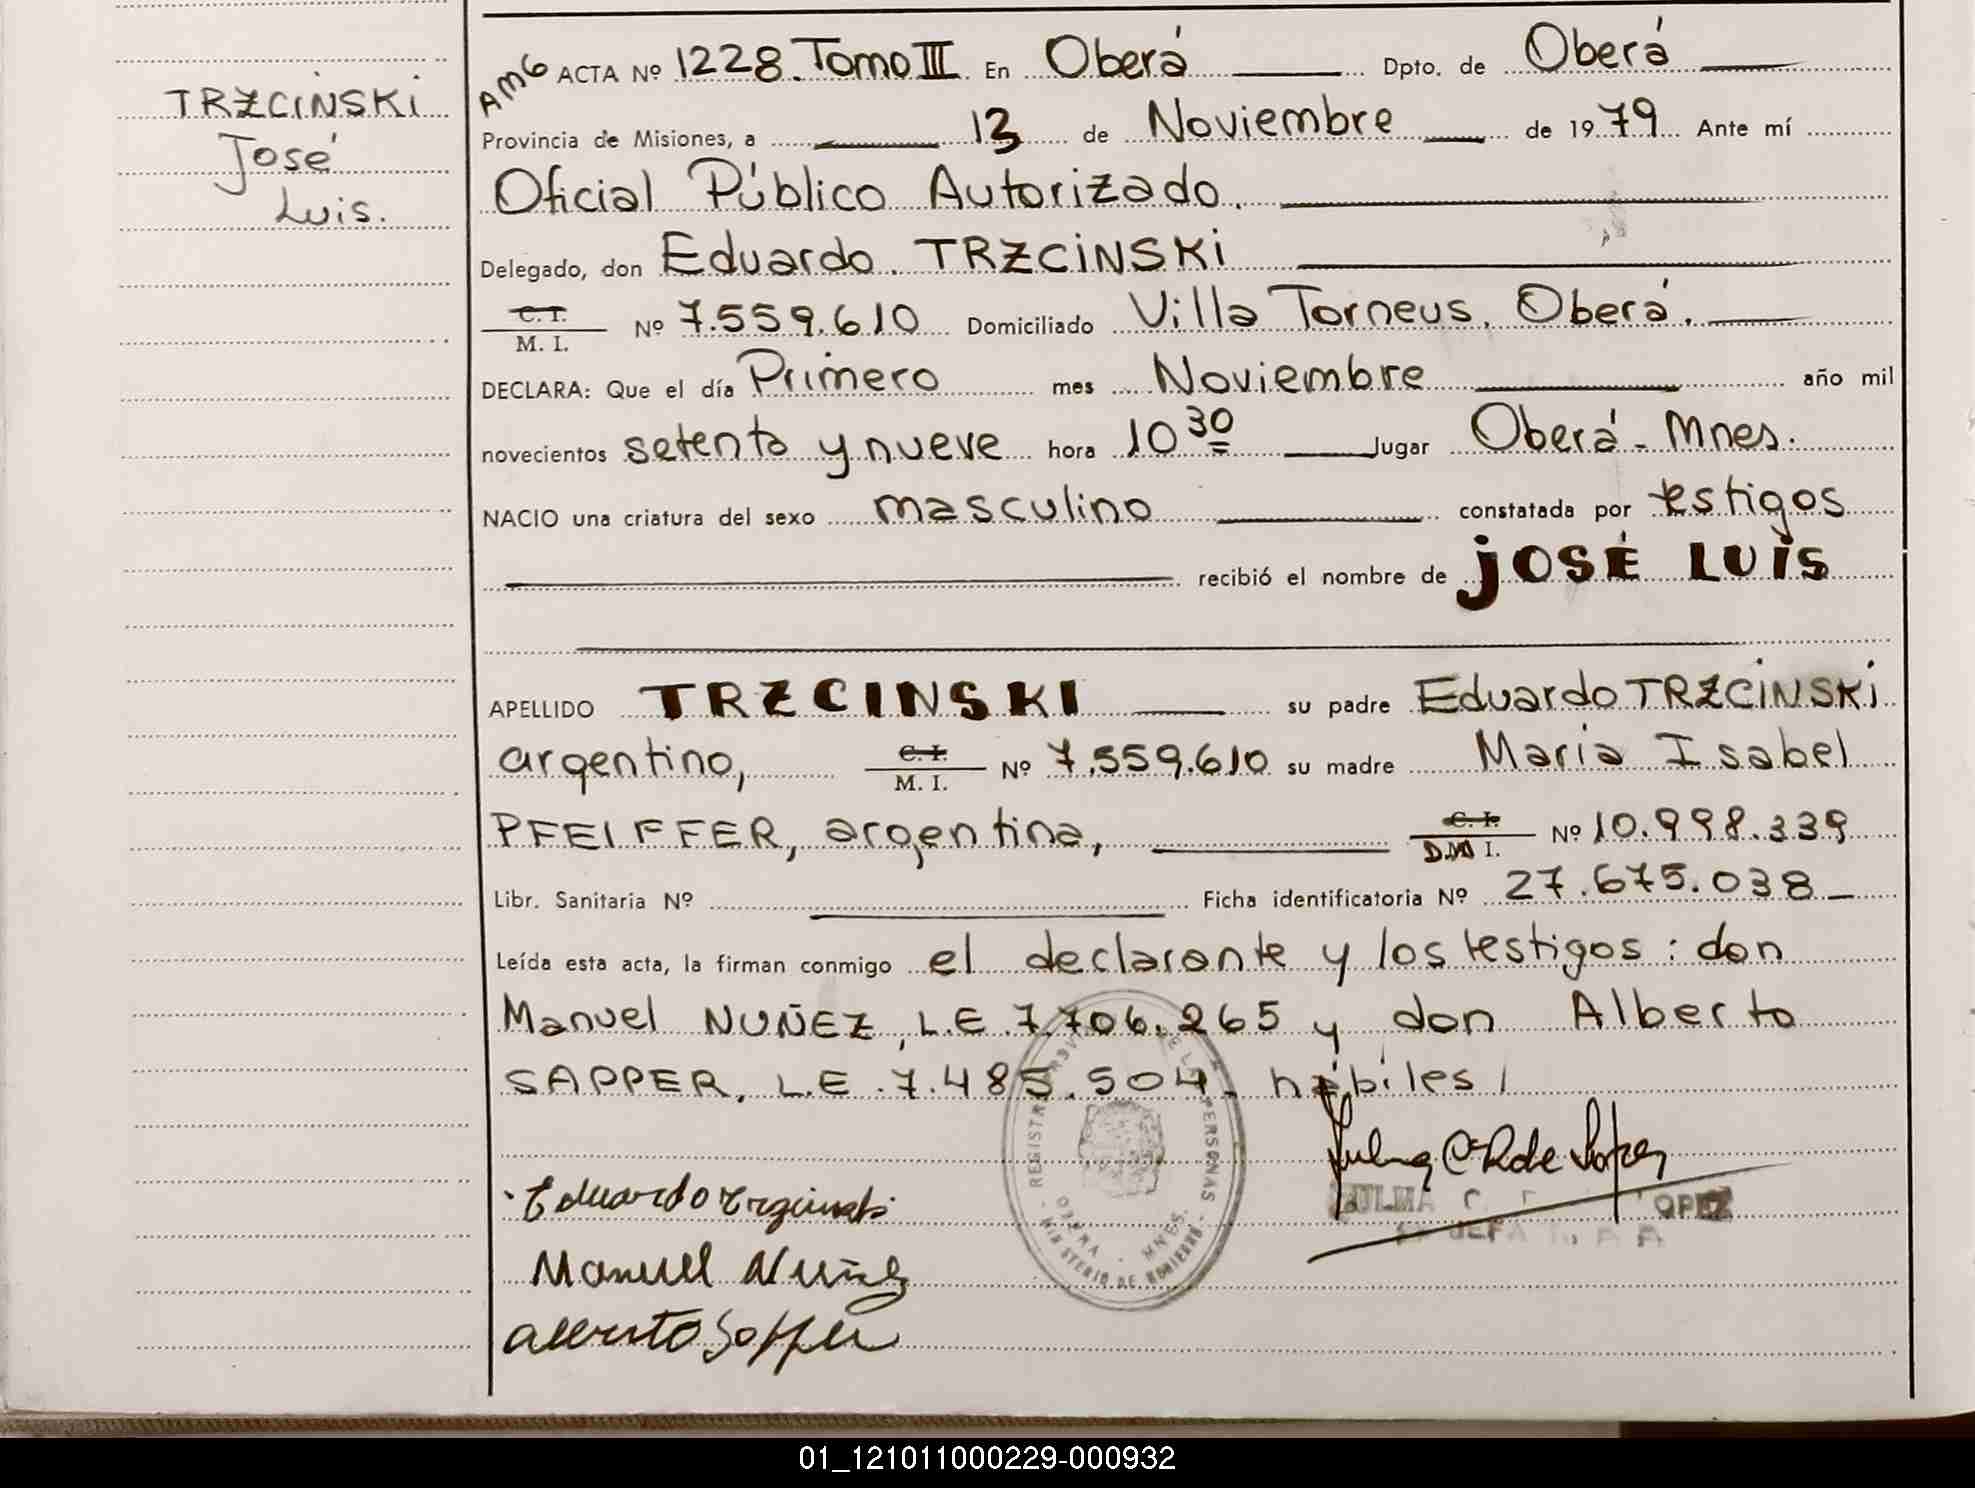 TRZCINSKI
José
Luis.
AMG ACTA Nº 1228. Tomo III En Oberá Dpto. de Oberá
Provincia de Misiones, a 13 de Noviembre de 1979 Ante mí
Oficial Público Autorizado.
Delegado, don Eduardo TRZCINSKI
C. I.
M. I. Nº 7.559.610 Domiciliado Villa Torneus. Oberá.
DECLARA: Que el día Primero mes Noviembre año mil
novecientos setenta y nueve hora 10 30 lugar Oberá - Mnes.
NACIO una criatura del sexo masculino constatada por testigos
recibió el nombre de JOSÉ LUIS
APELLIDO TRZCINSKI su padre Eduardo TRZCINSKI
argentino, C. I. M. I. Nº 7.559.610 su madre Maria Isabel
PFEIFFER, argentina, C. I. D.N.I. Nº 10.998.339
Libr. Sanitaria Nº Ficha identificatoria Nº 27.675.038
Leída esta acta, la firman conmigo el declarante y los testigos: don
Manuel NUÑEZ, L.E. 7.706.265 y don Alberto
SAPPER, L.E. 7.485.504. hábiles
REGISTRO DE LAS PERSONAS
OBERA - MNES.
MINISTERIO DE GOBIERNO
Eduardo Trzcinski
Manuel Nuñez
Alberto Sapper
ZULMA OPEZ
01_121011000229-000932